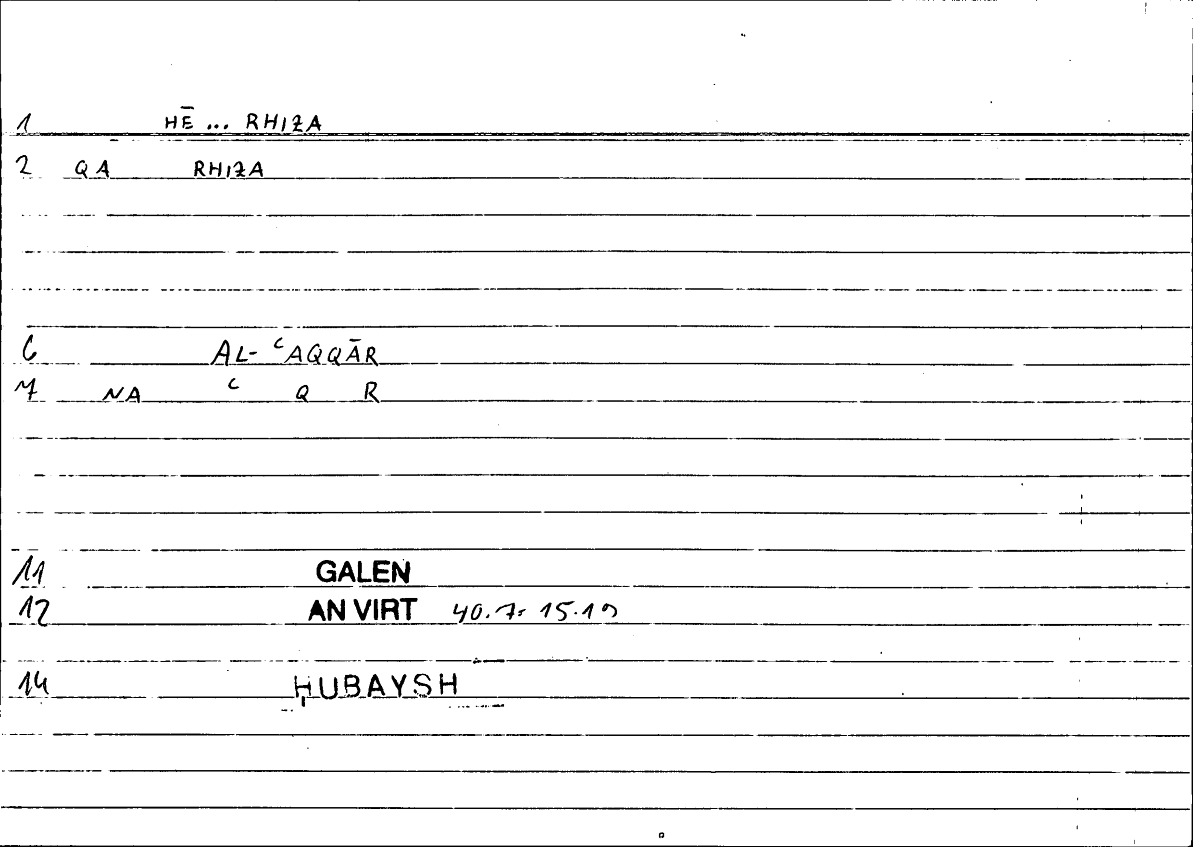 1 HĒ ... RHIZA
2 QA RHIZA
6 AL- ʿAQQĀR
7 NA ʿ Q R
11 GALEN
12 AN VIRT 40.7= 15.19
14 ḤUBAYSH